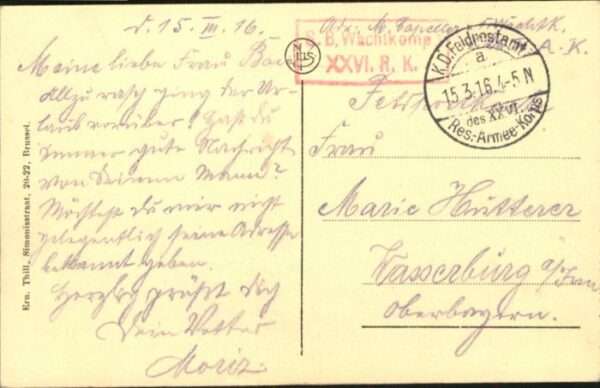 d. 15. III. 16.
Meine liebe Frau
Allzu rasch ging der Ur-
laub vorüber! Hast du
immer gute Nachricht
von Deinem Mann?
Möchtest du mir nicht
gelegentlich seine Adresse
bekannt geben.
Herzlich grüßt Dich
Dein Vetter
Moriz
Ern. Thill, Simonisstraat, 20-22, Brussel.
NELS
B. Wachtkomp
XXVI. R. K.
K.D. Feldpostamt
a
15.3.16.4-5N
des XXVI.
Res.-Armee-Korps
Frau
Marie Hutterer
Wasserburg a/Inn
Oberbayern.